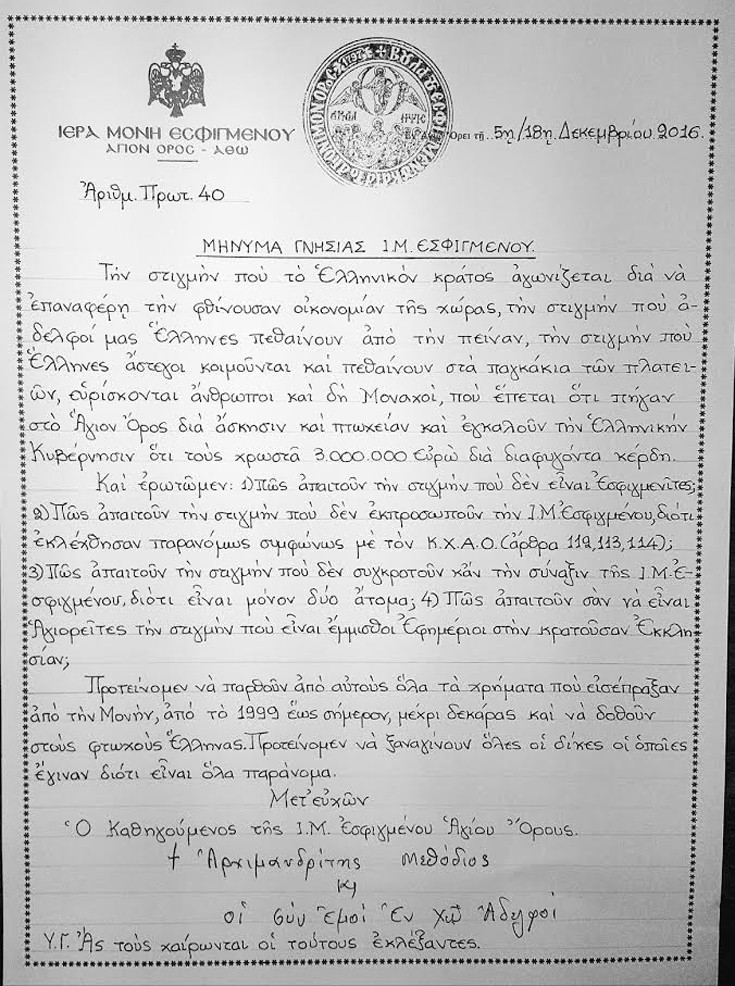 ΙΕΡΑ ΜΟΝΗ ΕΣΦΙΓΜΕΝΟΥ
ΑΓΙΟΝ ΟΡΟΣ - ΑΘΩ
Ὄρει τῇ 5ῃ/18ῃ Δεκεμβρίου 2016.
Ἀριθμ. Πρωτ. 40
ΜΗΝΥΜΑ ΓΝΗΣΙΑΣ Ι.Μ. ΕΣΦΙΓΜΕΝΟΥ.
Τὴν στιγμὴν ποὺ τὸ Ἑλληνικὸν κράτος ἀγωνίζεται διὰ νὰ
ἐπαναφέρῃ τὴν φθίνουσαν οἰκονομίαν τῆς χώρας, τὴν στιγμὴν ποὺ ἀ-
δελφοί μας Ἕλληνες πεθαίνουν ἀπὸ τὴν πείναν, τὴν στιγμὴν ποὺ
Ἕλληνες ἄστεγοι κοιμοῦνται καὶ πεθαίνουν στὰ παγκάκια τῶν πλατει-
ῶν, εὑρίσκονται ἄνθρωποι καὶ δὴ Μοναχοὶ, ποὺ ἕπεται ὅτι πῆγαν
στὸ Ἅγιον Ὄρος διὰ ἄσκησιν καὶ πτωχείαν καὶ ἐγκαλοῦν τὴν Ἑλληνικὴν
Κυβέρνησιν ὅτι τοὺς χρωστᾶ 3.000.000 Εὐρὼ διὰ διαφυγόντα κέρδη.
Καὶ ἐρωτῶμεν: 1) Πῶς ἀπαιτοῦν τὴν στιγμὴν ποὺ δὲν εἶναι Ἐσφιγμενίτες;
2) Πῶς ἀπαιτοῦν τὴν στιγμὴν ποὺ δὲν ἐκπροσωποῦν τὴν Ι.Μ. Ἐσφιγμένου, διότι
ἐκλέχθησαν παρανόμως συμφώνως μὲ τὸν Κ.Χ.Α.Ο. (ἄρθρα 112, 113, 114);
3) Πῶς ἀπαιτοῦν τὴν στιγμὴν ποὺ δὲν συγκροτοῦν κἂν τὴν σύναξιν τῆς Ι.Μ. Ἐ-
σφιγμένου, διότι εἶναι μόνον δύο ἄτομα; 4) Πῶς ἀπαιτοῦν σὰν νὰ εἶναι
Ἁγιορεῖτες τὴν στιγμὴν ποὺ εἶναι ἔμμισθοι Ἐφημέριοι στὴν κρατοῦσαν Ἐκκλη-
σίαν;
Προτείνομεν νὰ παρθοῦν ἀπὸ αὐτοὺς ὅλα τὰ χρήματα ποὺ εἰσέπραξαν
ἀπὸ τὴν Μονὴν, ἀπὸ τὸ 1999 ἕως σήμερον, μέχρι δεκάρας καὶ νὰ δοθοῦν
στοὺς φτωχοὺς Ἕλληνας. Προτείνομεν νὰ ξαναγίνουν ὅλες οἱ δίκες οἱ ὁποῖες
ἔγιναν διότι εἶναι ὅλα παράνομα.
Μετ' εὐχῶν
Ὁ Καθηγούμενος τῆς Ι.Μ. Ἐσφιγμένου Ἁγίου Ὄρους.
† Ἀρχιμανδρίτης Μεθόδιος
οἱ σὺν Ἐμοὶ Ἐν Χῷ Ἀδελφοὶ
Υ.Γ. Ἂς τοὺς χαίρωνται οἱ τούτους ἐκλέξαντες.